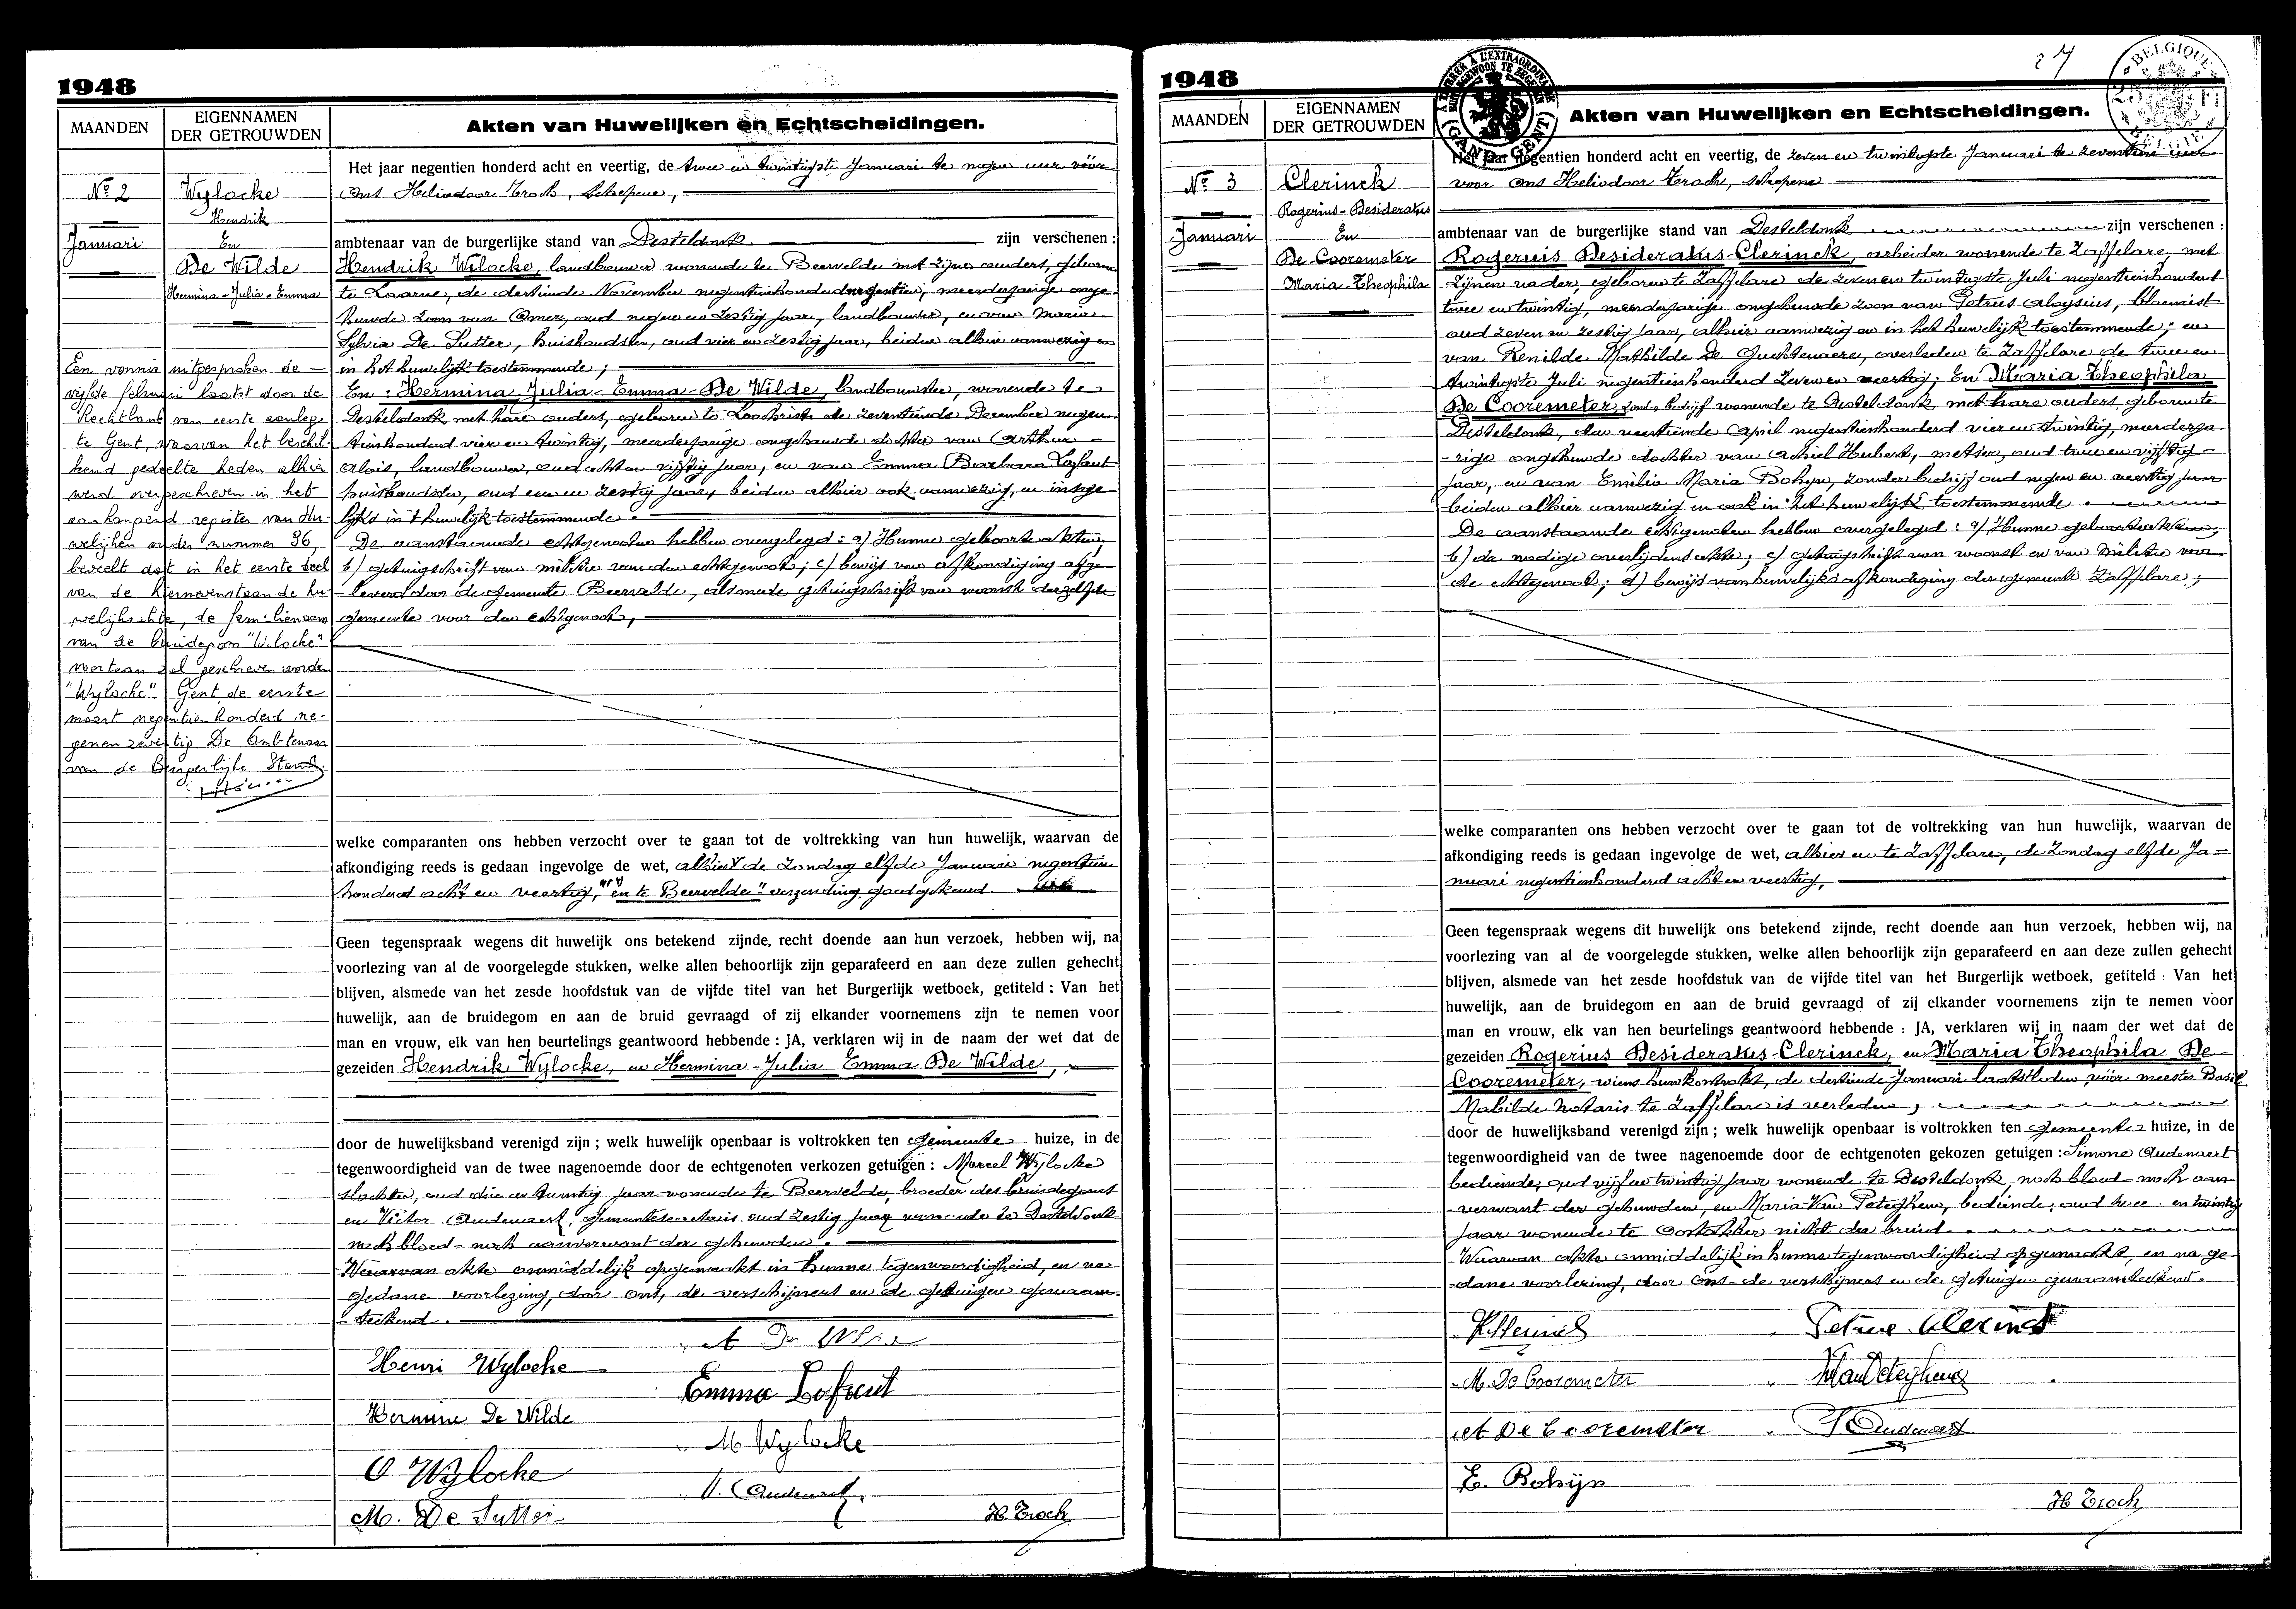 1948
MAANDEN
EIGENNAMEN
DER GETROUWDEN
Akten van Huwelijken en Echtscheidingen.
No 2
Januari
Wylocke
Hendrik
En
De Wilde
Hermina-Julia-Emma
Een vonnis uitgesproken de
vijfde februari laatst door de
Rechtbank van eerste aanleg
te Gent, waarvan het beschik-
kend gedeelte heden alhier
werd overgeschreven in het
aanhangend register van Hu-
welijken onder nummer 36,
beveelt dat in het eerste deel
van de hiernevenstaande hu-
welijksakte, de familienaam
van de bruidegom "Wilocke"
voortaan zal geschreven worden
"Wylocke". Gent, de eerste
maart negentien honderd ne-
genenzeventig. De Ambtenaar
van de Burgerlijke Stand.
Het jaar negentien honderd acht en veertig, de twee en twintigste Januari te negen uur vóór
Ons Heliodoor Troch, Schepene,
ambtenaar van de burgerlijke stand van Desteldonk zijn verschenen :
Hendrik Wilocke, landbouwer wonende te Beervelde met zijne ouders, geboren
te Laarne, de dertiende November negentienhonderd negentien, meerderjarige onge-
huwde zoon van Omer, oud negen en zestig jaar, landbouwer, en van Maria
Sylvia De Sutter, huishoudster, oud vier en zestig jaar, beiden alhier aanwezig en
in het huwelijk toestemmende ;
En : Hermina Julia-Emma De Wilde, landbouwster, wonende te
Desteldonk met hare ouders, geboren te Lochristi de zeventiende December negen-
tienhonderd vier en twintig, meerderjarige ongehuwde dochter van Arthur
Alois, landbouwer, oud acht en vijftig jaar, en van Emma Barbara Lafaut
huishoudster, oud een en zestig jaar, beiden alhier ook aanwezig, en insge-
lijks in 't huwelijk toestemmende.
De aanstaande echtgenoten hebben overgelegd : a) Hunne geboorteakten;
b) getuigschrift van militie van den echtgenoot; c) bewijs van afkondiging afge-
leverd door de gemeente Beervelde, alsmede getuigschrift van woonst derzelfde
gemeente voor den echtgenoot,
welke comparanten ons hebben verzocht over te gaan tot de voltrekking van hun huwelijk, waarvan de
afkondiging reeds is gedaan ingevolge de wet, alhier de Zondag elfde Januari negentien
honderd acht en veertig, "en te Beervelde" verzending goedgekeurd.
Geen tegenspraak wegens dit huwelijk ons betekend zijnde, recht doende aan hun verzoek, hebben wij, na
voorlezing van al de voorgelegde stukken, welke allen behoorlijk zijn geparafeerd en aan deze zullen gehecht
blijven, alsmede van het zesde hoofdstuk van de vijfde titel van het Burgerlijk wetboek, getiteld : Van het
huwelijk, aan de bruidegom en aan de bruid gevraagd of zij elkander voornemens zijn te nemen voor
man en vrouw, elk van hen beurtelings geantwoord hebbende : JA, verklaren wij in de naam der wet dat de
gezeiden Hendrik Wylocke, en Hermina-Julia Emma De Wilde,
door de huwelijksband verenigd zijn ; welk huwelijk openbaar is voltrokken ten gemeente huize, in de
tegenwoordigheid van de twee nagenoemde door de echtgenoten verkozen getuigen : Marcel Wylocke
slachter, oud drie en twintig jaar wonende te Beervelde, broeder des bruidegoms
en Victor Audenaert, gemeentesecretaris oud zestig jaar wonende te Desteldonk
noch bloed- noch aanverwant der gehuwden.
Waarvan akte onmiddelijk opgemaakt in hunne tegenwoordigheid, en na
gedane voorlezing, door ons, de verschijners en de getuigen genaam-
tekend.
A De Wilde
Henri Wylocke
Emma Lafaut
Hermine De Wilde
M Wylocke
O Wylocke
V. Audenaert
M. De Sutter
H. Troch
1948
27
A TIMBRER A L'EXTRAORDINAIRE
BUITENGEWOON TE ZEGELEN
(GAND-GENT)
BELGIQUE
BELGIE
MAANDEN
EIGENNAMEN
DER GETROUWDEN
Akten van Huwelijken en Echtscheidingen.
No 3
Januari
Clerinck
Rogerius-Desideratus
En
De Cooremeter
Maria-Theophila
Het jaar negentien honderd acht en veertig, de zeven en twintigste Januari te zeventien uur
voor Ons Heliodoor Troch, schepene
ambtenaar van de burgerlijke stand van Desteldonk zijn verschenen :
Rogeruis Desideratus Clerinck, arbeider wonende te Zaffelare, met
zijnen vader, geboren te Zaffelare de zeven en twintigste Juli negentienhonderd
twee en twintig, meerderjarige ongehuwde zoon van Petrus Aloysius, bloemist
oud zeven en zestig jaar, alhier aanwezig en in het huwelijk toestemmende; en
van Renilde Mathilde De Guchtenaere, overleden te Zaffelare de twee en
twintigste Juli negentienhonderd zeven en veertig; En Maria Theophila
De Cooremeter, zonder bedrijf wonende te Desteldonk met hare ouders geboren te
Desteldonk, den veertiende April negentienhonderd vier en twintig, meerderja-
-rige ongehuwde dochter van Achiel Hubert, metser, oud twee en vijftig
jaar, en van Emilia Maria Bohyn, zonder bedrijf oud negen en veertig jaar
beiden alhier aanwezig en ook in het huwelijk toestemmende.
De aanstaande echtgenoten hebben overgelegd : a) Hunne geboorteakten;
b) de nodige overlijdensakte; c) getuigschrift van woonst en van Militie voor
de echtgenoot; d) bewijs van huwelijksafkondiging der gemeente Zaffelare;
welke comparanten ons hebben verzocht over te gaan tot de voltrekking van hun huwelijk, waarvan de
afkondiging reeds is gedaan ingevolge de wet, alhier en te Zaffelare, de Zondag elfde Ja-
nuari negentienhonderd acht en veertig,
Geen tegenspraak wegens dit huwelijk ons betekend zijnde, recht doende aan hun verzoek, hebben wij, na
voorlezing van al de voorgelegde stukken, welke allen behoorlijk zijn geparafeerd en aan deze zullen gehecht
blijven, alsmede van het zesde hoofdstuk van de vijfde titel van het Burgerlijk wetboek, getiteld : Van het
huwelijk, aan de bruidegom en aan de bruid gevraagd of zij elkander voornemens zijn te nemen voor
man en vrouw, elk van hen beurtelings geantwoord hebbende : JA, verklaren wij in naam der wet dat de
gezeiden Rogerius Desideratus Clerinck, en Maria Theophila De
Cooremeter, wiens huwkontrakt, de dertiende Januari laatstleden vóór meester Basile
Mabilde Notaris te Zaffelare is verleden,
door de huwelijksband verenigd zijn ; welk huwelijk openbaar is voltrokken ten gemeente huize, in de
tegenwoordigheid van de twee nagenoemde door de echtgenoten gekozen getuigen : Simone Audenaert
bediende, oud vijf en twintig jaar wonende te Desteldonk, noch bloed- noch aan-
-verwant der gehuwden, en Maria Van Peteghem, bediende, oud twee en twintig
jaar wonende te Oostakker nicht der bruid.
Waarvan akte onmiddelijk in hunne tegenwoordigheid opgemaakt, en na ge-
-dane voorlezing, door ons - de verschijners en de getuigen genaamtekend.
R Clerinck
Petrus Clerinck
M. De Cooremeter
M Van Peteghem
A De Cooremeter
S Audenaert
E. Bohijn
H Troch